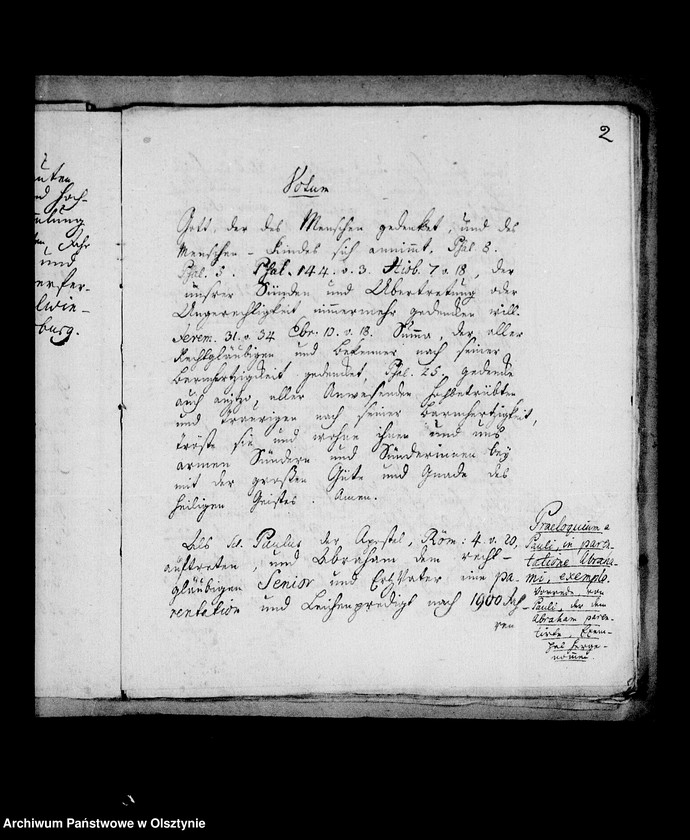 2
uten
nd Hoch-
mlung
Jahr
und
erfer-
lwie-
burg.
Votum
Gott, der des Menschen gedenket, und des
Menschen-Kindes sich annimmt, Psal. 8.
Psal. 5. Psal. 144. v. 3. Hiob. 7 v. 18, der
unsrer Sünden und Übertretung oder
Ungerechtigkeit nimmermehr gedenken will.
Jerem. 31. v. 34 Ebr. v. 18. der aller
Rechtgläubigen und Bekenner nach seiner
Barmhertzigkeit gedencket, Psal. 25, gedencke
auch anjtzo, aller Anwesenden Hochbetrübten
und traurigen nach seiner Barmhertzigkeit,
tröste sie, und wohne ihnen und uns
armen Sündern und Sünderinnen bey
mit der großen Güte und Gnade des
Heiligen Geistes. Amen.
Als St. Paulus der Apostel, Röm: 4. v. 20,
auftreten, und Abraham dem recht-
gläubigen Senior und ErtzVater eine pa-
rentation und Leichenpredigt nach 1900 Jah-
ren
Praeloquium a
Pauli, in paren-
tatione Abraha-
mi, exemplo.
Vorrede von
Pauli, der dem
Abraham paren-
tirte, Exem-
pel herge-
nom̄en.
Archiwum Państwowe w Olsztynie